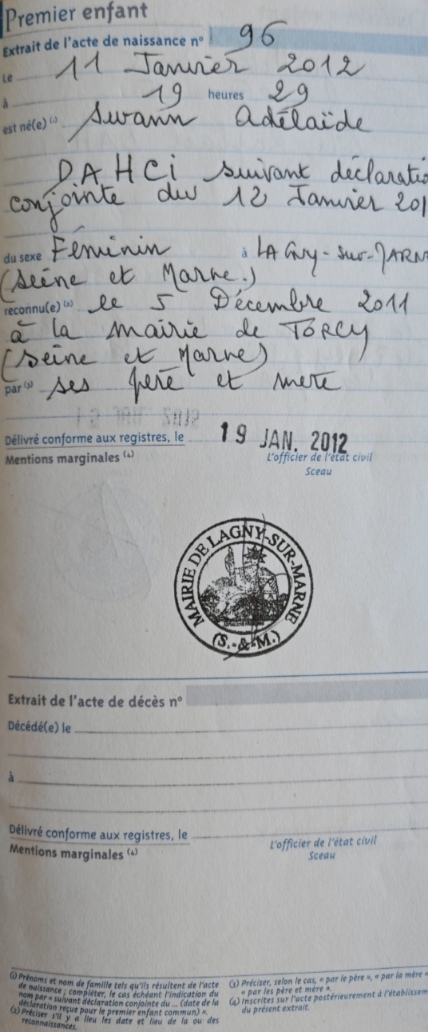 Premier enfant
Extrait de l'acte de naissance n° 96
Le 11 Janvier 2012
à 19 heures 29
est né(e) (1) Swann Adélaïde
DAHCi suivant déclaratio
conjointe du 12 Janvier 201
du sexe Féminin à LAGny-Sur-MARN
(Seine et Marne.)
reconnu(e) (2) le 5 Décembre 2011
à la mairie de TORCY
(Seine et Marne)
par (3) ses père et mère
Délivré conforme aux registres, le 19 JAN. 2012
Mentions marginales (4) L'officier de l'état civil
Sceau
MAIRIE DE LAGNY-SUR-MARNE
(S.-&-M.)
Extrait de l'acte de décès n°
Décédé(e) le
à
Délivré conforme aux registres, le
Mentions marginales (4) L'officier de l'état civil
Sceau
(1) Prénoms et nom de famille tels qu'ils résultent de l'acte
de naissance ; compléter, le cas échéant l'indication du
nom par « suivant déclaration conjointe du ... (date de la
déclaration reçue pour le premier enfant commun) ».
(2) Préciser s'il y a lieu les date et lieu de la ou des
reconnaissances.
(3) Préciser, selon le cas, « par le père », « par la mère »
« par les père et mère ».
(4) Inscrites sur l'acte postérieurement à l'établissem
du présent extrait.